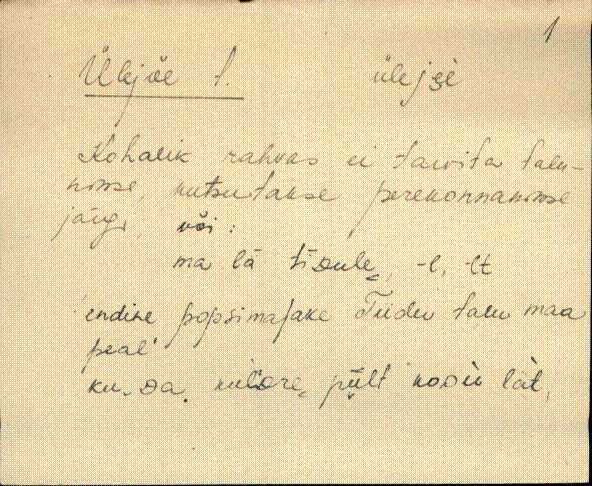 1
Ülejõe t. ülejɛe̮
Kohalik rahvas ei tarvita talu-
nime, kutsutakse perekonnanime
järgi, või:
ma lä tīDule, -l, -lt
'endine popsimajake Tiidu talu maa
peal'
ku-Da. pǖlt kooDu lät,